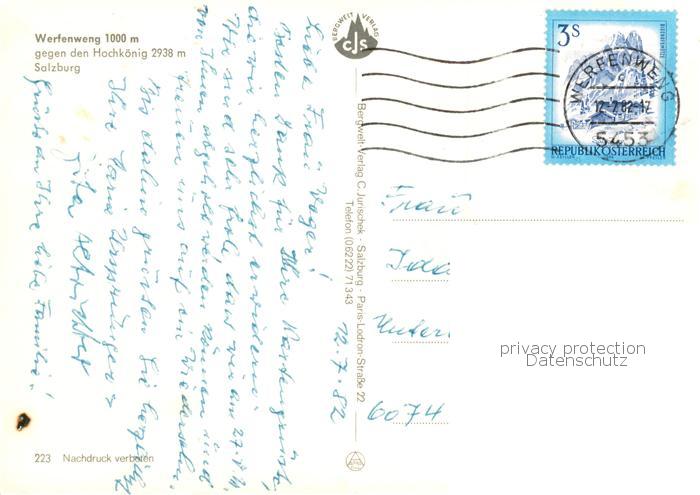 Werfenweng 1000 m
gegen den Hochkönig 2938 m
Salzburg
BERGWELT VERLAG
CJS
3 S
WERFENWENG
12-7.82-17
5453
REPUBLIK ÖSTERREICH
Bergwelt-Verlag C. Jurischek - Salzburg - Paris-Lodron-Straße 22
Telefon (06222) 71 343
12.7.82
Liebe Frau
Besten Dank für Ihre Kartengrüsse,
die wir herzlichst erwidern.
Wir sind sehr froh, dass wir am 27.
von Ihnen abgeholt werden können und
freuen uns auf ein Wiedersehn.
Bis dahin grüssen Sie herzlich
Ihre Maria
Grüsse an Ihre liebe Familie!
Frau
Ida
6074
privacy protection
Datenschutz
223 Nachdruck verboten